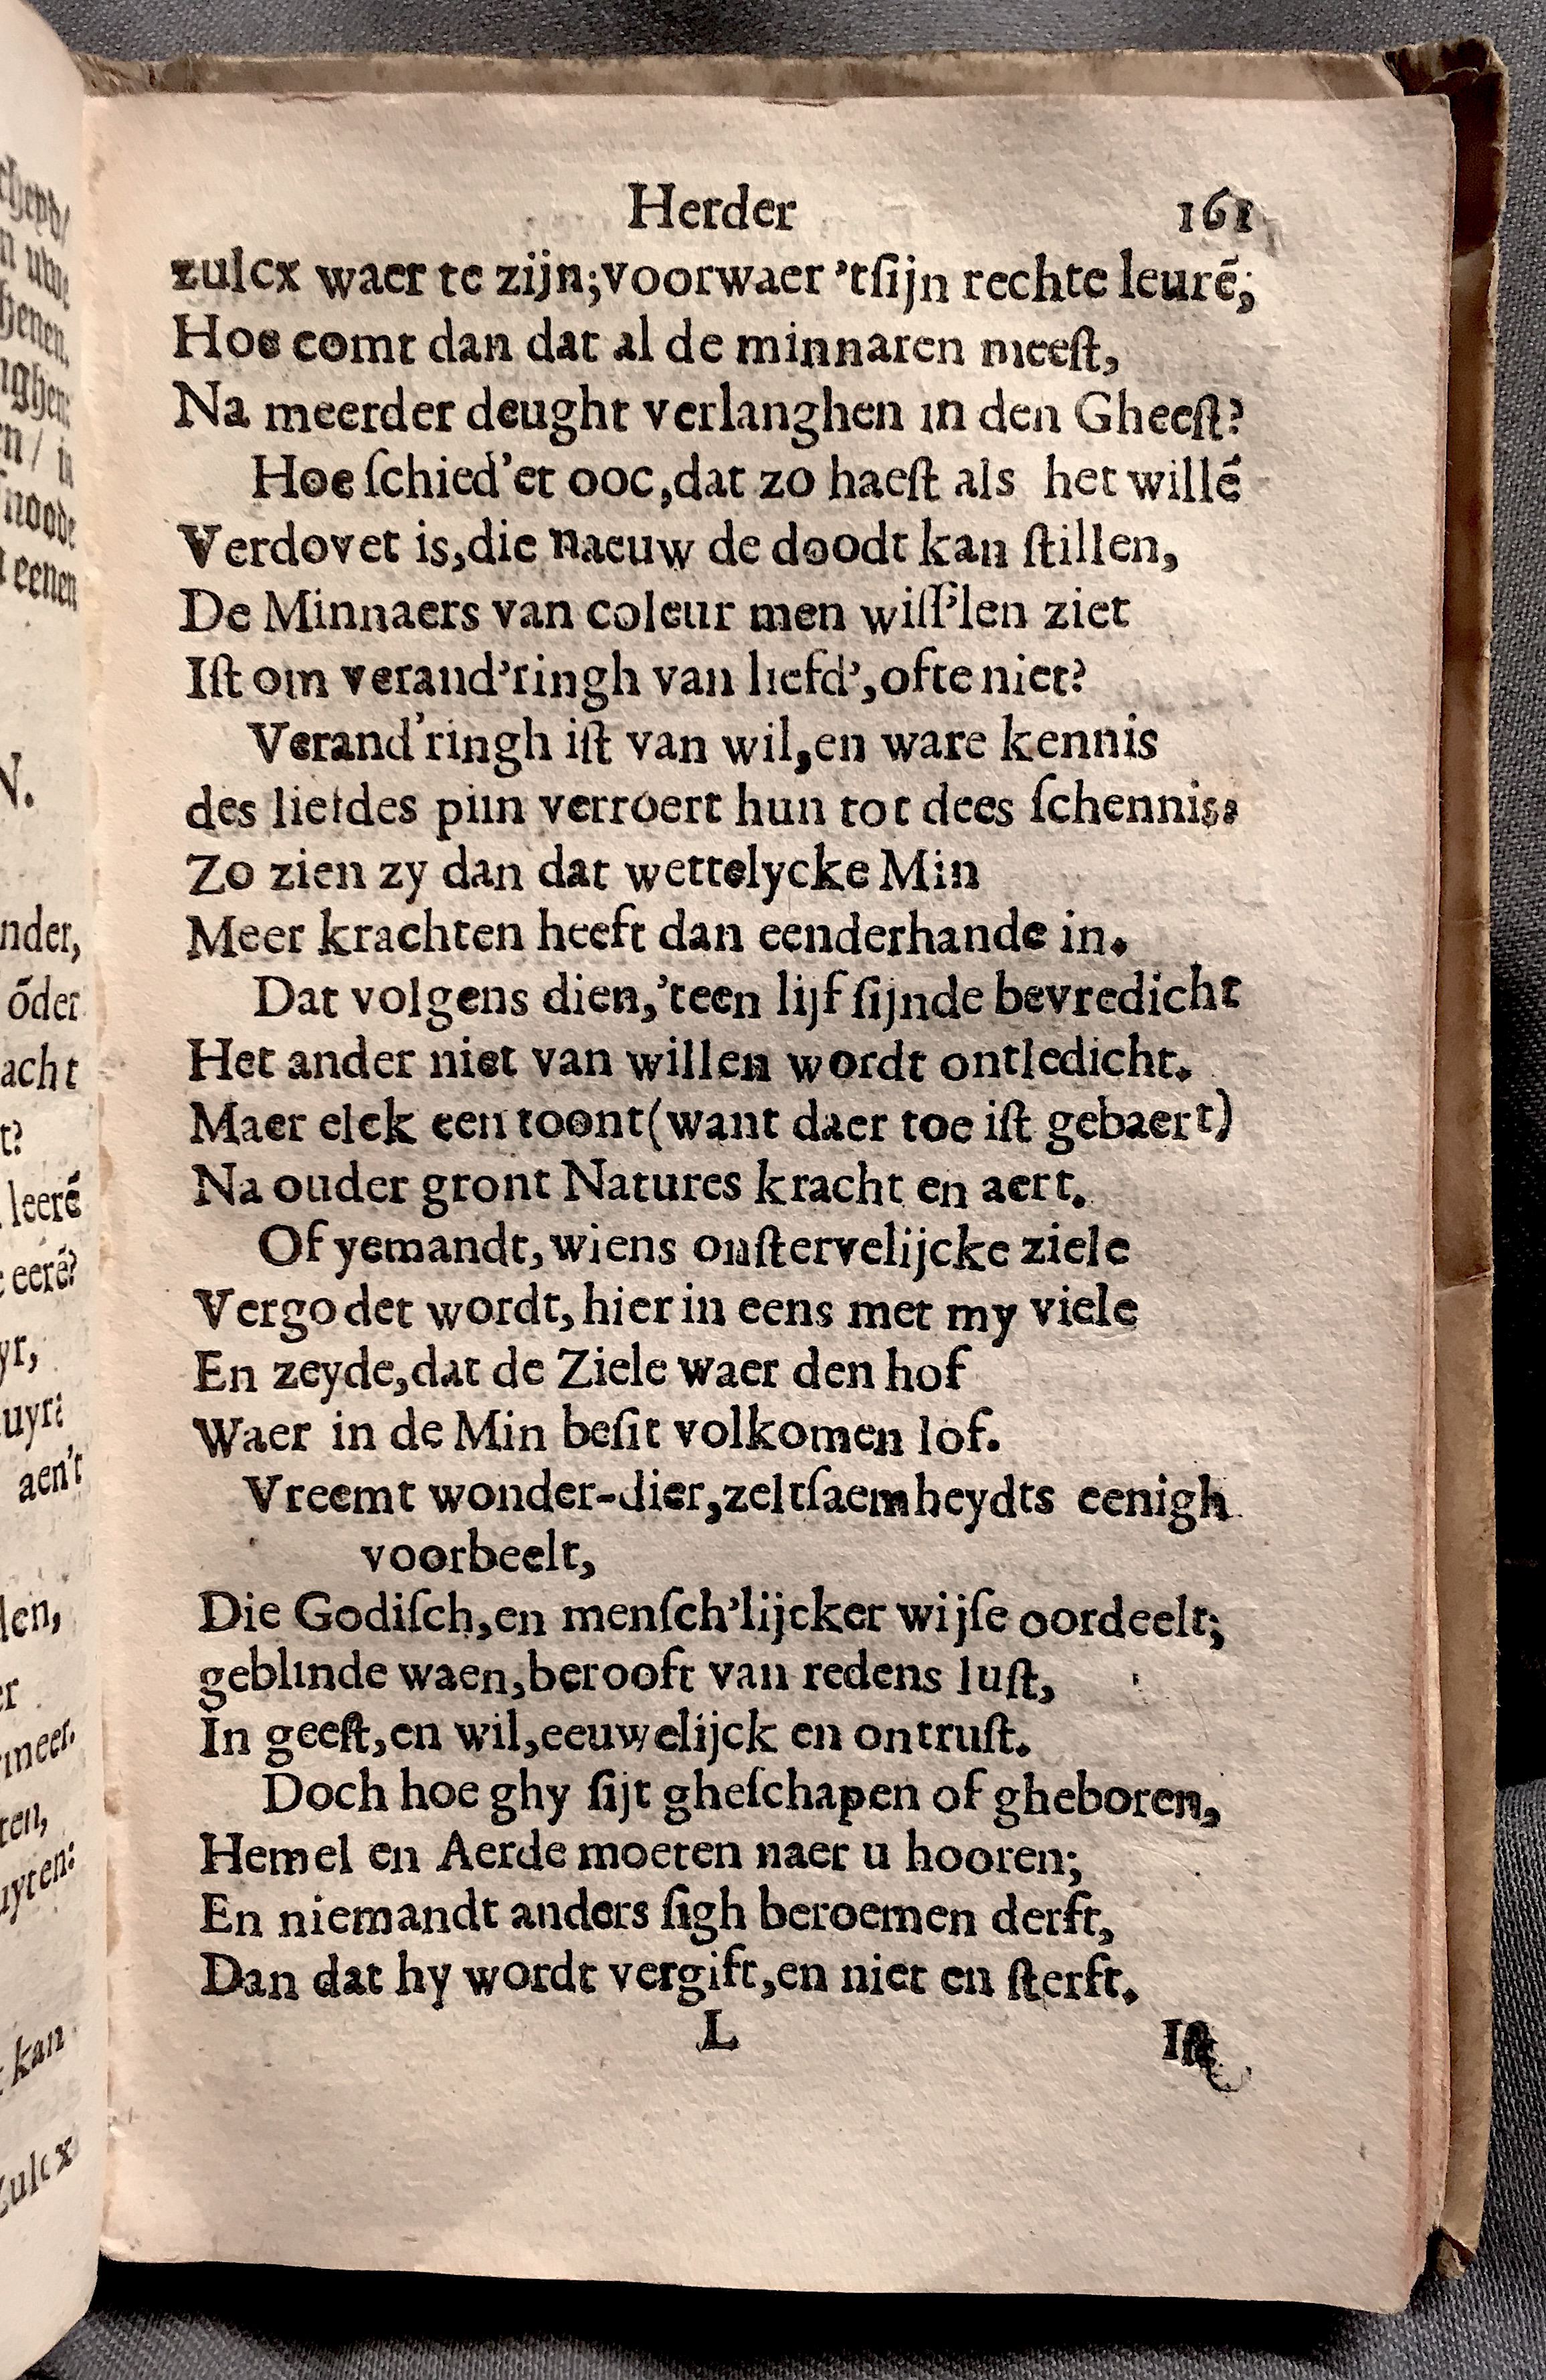 Herder 161
zulcx waer te zijn;voorwaer ’tſijn rechte leurē;
Hoe comt dan dat al de minnaren meeſt,
Na meerder deught verlanghen in den Gheeſt?
Hoe ſchied’et ooc,dat zo haeſt als het willē
Verdovet is,die naeuw de doodt kan ſtillen,
De Minnaers van coleur men wiſſ’len ziet
Iſt om veraud’ringh van liefd’,ofte niet?
Verand’ringh iſt van wil,en ware kennis
des liefdes piin verroert hun tot dees ſchennis:
Zo zien zy dan dat wettelycke Min
Meer krachten heeft dan eenderhande in.
Dat volgens dien,’teen lijf ſijnde bevredicht
Het ander niet van willen wordt ontledicht.
Maer elck een toont(want daer toe iſt gebaert)
Na ouder gront Natures kracht en aert.
Of yemandt,wiens onſtervelijcke ziele
Vergodet wordt,hier in eens met my viele
En zeyde,dat de Ziele waer den hof
Waer in de Min beſit volkomen lof.
Vreemt wonder-dier,zeltſaemheydts eenigh
voorbeelt,
Die Godiſch,en menſch’lijcker wijſe oordeelt;
geblinde waen,berooft van redens luſt,
In geeſt,en wil,eeuwelijck en ontruſt.
Doch hoe ghy ſijt gheſchapen of gheboren,
Hemel en Aerde moeten naer u hooren;
En niemandt anders ſigh beroemen derft,
Dan dat hy wordt vergift,en niet en ſterft.
L Iſt